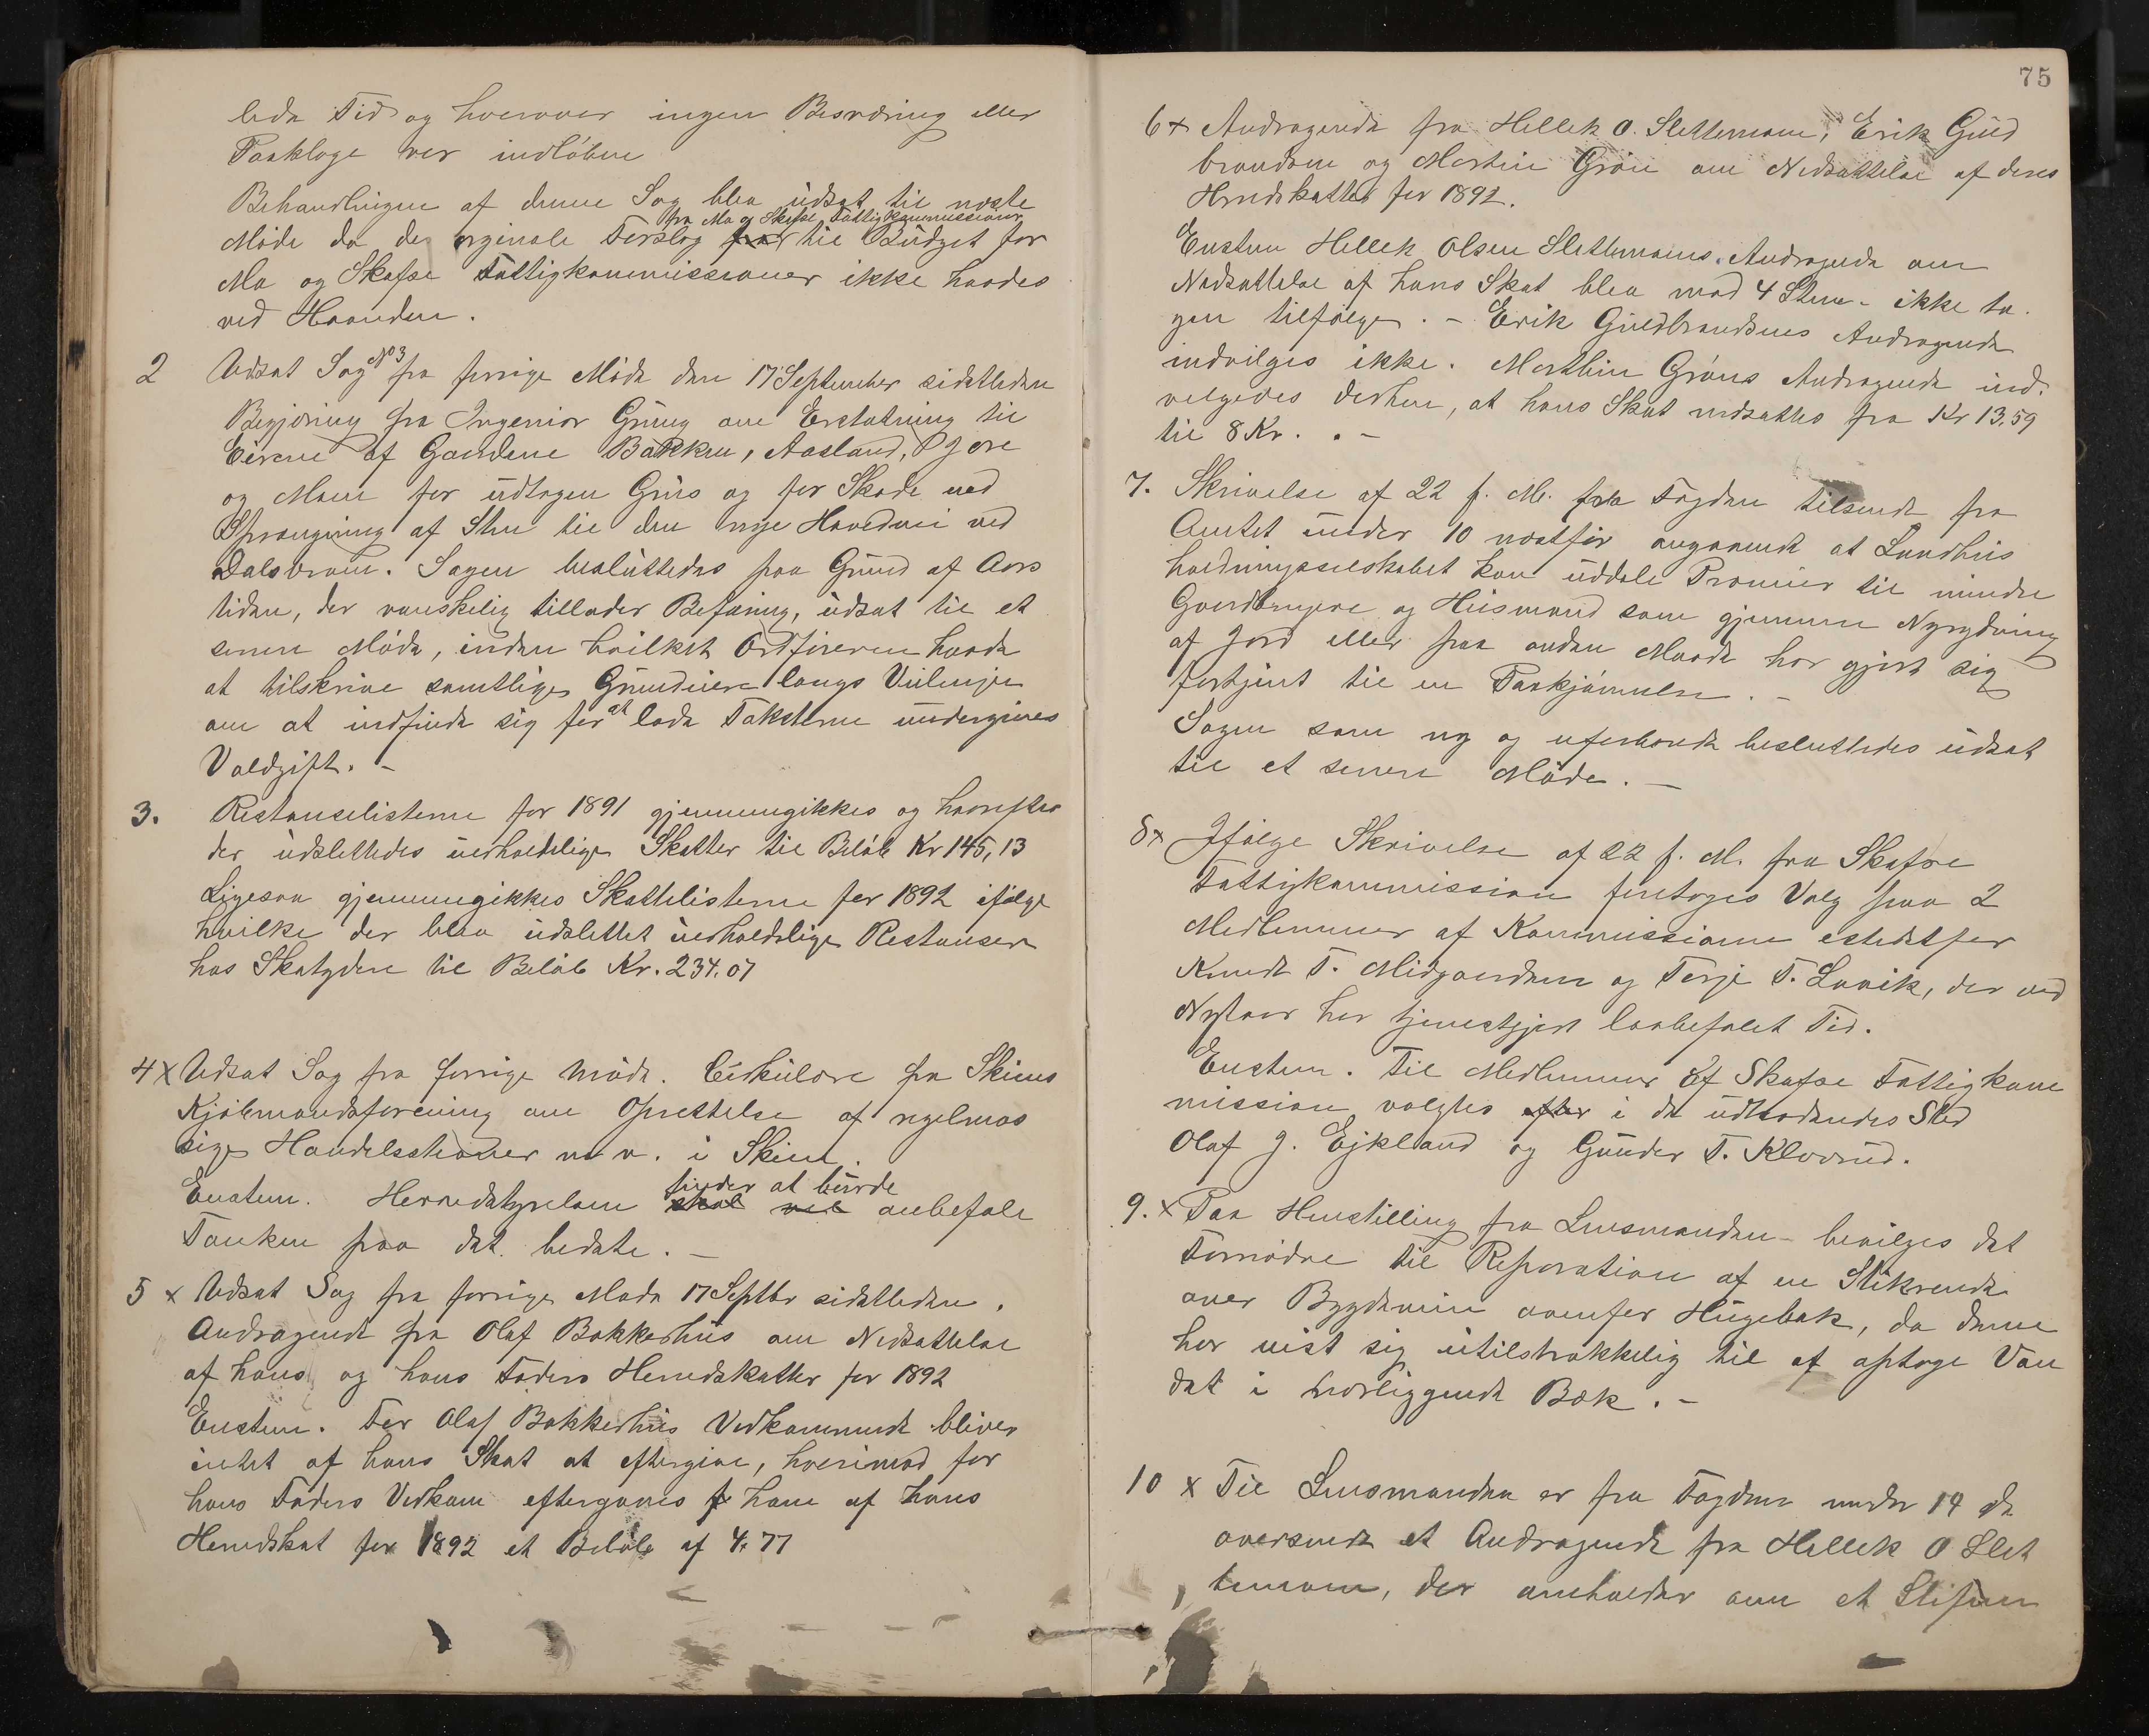 leda Tid og hverover ingen Besværing eller
Paaklage var indløben
Behandlingen af denne Sag blev udsat til næste
fra Mo og Skafse Fattigkommissioner
Møde da de orginale Forslag fra til Budget for
Mo og Skafse Fattigkommissioner ikke haves
ved Haanden.
2 Udsat Sag No 3 fra forrige Møde den 17 September sidstleden
Begjæring fra Ingeniør Gring om Erstatning til
Eierne af Gaardene Bakken, Aasland, Gjøre
og Moen for udtagen Grus og for Skade ved
Sprængning af Sten til den nye Hovedvei ved
Dalsbraaen. Sagen besluttedes paa Grund af Aars
tiden, der vanskelig tillader Befaring, udsat til et
senere Møde, inden hvilket Ordføreren havde
at tilskrive samtlige Grundeiere langs Veilinjen
om at indfinde sig for at lade Taksterne undergives
Voldgift. -
3. Restanselisterne for 1891 gjennemgikkes og hvorefter
der udslettedes uerholdelige Skatter til Beløb Kr 145,13
Ligesaa gjennemgikkes Skattelisterne for 1892 ifølge
hvilke der blev udslettet uerholdelige Restanser
hos Skatydere til Beløb Kr. 234.07
4 x Udsat Sag fra forrige Møde. Cirkulære fra Skiens
Kjøbmandsforening om Oprettelse af regelmæs
sige Handelsstevner m. v. i Skien.
finder at burde
Enstem. Herredstyrelsen skal vel anbefale
Tanken paa det bedste. -
5 x Udsat Sag fra forrige Møde 17 Septbr sidstleden.
Andragende fra Olaf Bakkerhus om Nedsættelse
af hans og hans Faders Herredskatter for 1892
Enstem. For Olaf Bakkerhus Vedkommende bliver
intet af hans Skat at eftergive, hverimod for
hans Faders Vedkom eftergaves f ham af hans
Herredskat for 1892 et Beløb af 4.77
75
6 x Andragende fra Hellek O. Slettemoen, Erik Guld
brandsen og Martin Grøn om Nedsættelse af deres
Herredskatter for 1892.
Enstem Hellek Olsen Slettemoens Andragende om
Nedsættelse af hans Skat blev mod 4 Stem- ikke ta-
gen tilfølge. - Erik Guldbrandsens Andragende
indvilges ikke. Marthin Grøns Andragende ind-
velgedes derhen, at hans Skat nedsattes fra Kr 13.59
til 8 Kr. . -
7. Skrivelse af 22 f. M. fra Fogden tilsendt fra
Amtet under 10 næstfør angaaende at Landhus
holdningsselskabet kan uddele Præmier til mindre
Gaardbrugere og Husmænd som gjennem Nyrydning
af Jord eller paa anden Maade har gjort sig
fortjent til en Paaskjønnelse. -
Sagen som ny og uforberedt besluttedes udsat
til et senere Møde. -
8 x Ifølge Skrivelse af 22 f. M. fra Skafse
Fattigkommission foretoges Valg paa 2
Medlemmer af Kommissionen istedetfor
Knudt T. Midgaarden og Terje T. Lavik, der ved
Nytaar har tjenestgjort lovbefalet Tid.
Enstem. Til Medlemmer af Skafse Fattigkom
mission valgtes efter i de udtrædendes Sted
Olaf J. Ejkland og Gunder T. Klovrud.
9. x Paa Henstilling fra Lensmanden bevilges det
Fornødne til Reparation af en Stikrende
over Bygdeveien ovenfor Hugebak, da denne
har vist sig utilstrækkelig til at optage Van
det i hosliggende Bæk. -
10 x Til Lensmanden er fra Fogden under 14 ds
oversendt et Andragende fra Hellek O Slet
temoen, der anholder om et Stipen